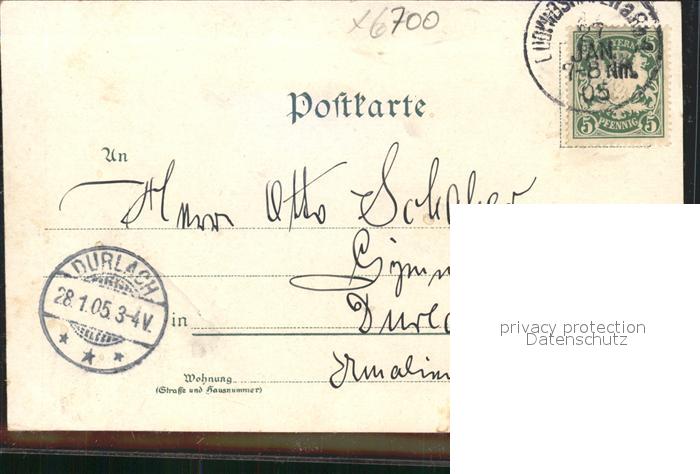 x6700
LUDWIGSHAFEN a. Rh.
27
JAN
7-8 Nm.
05
BAYERN
5 PFENNIG 5
Postkarte
An
Herr Otto
Gymn
DURLACH
28.1.05.3-4V.
in Durl
Wohnung
(Straße und Hausnummer)
privacy protection
Datenschutz